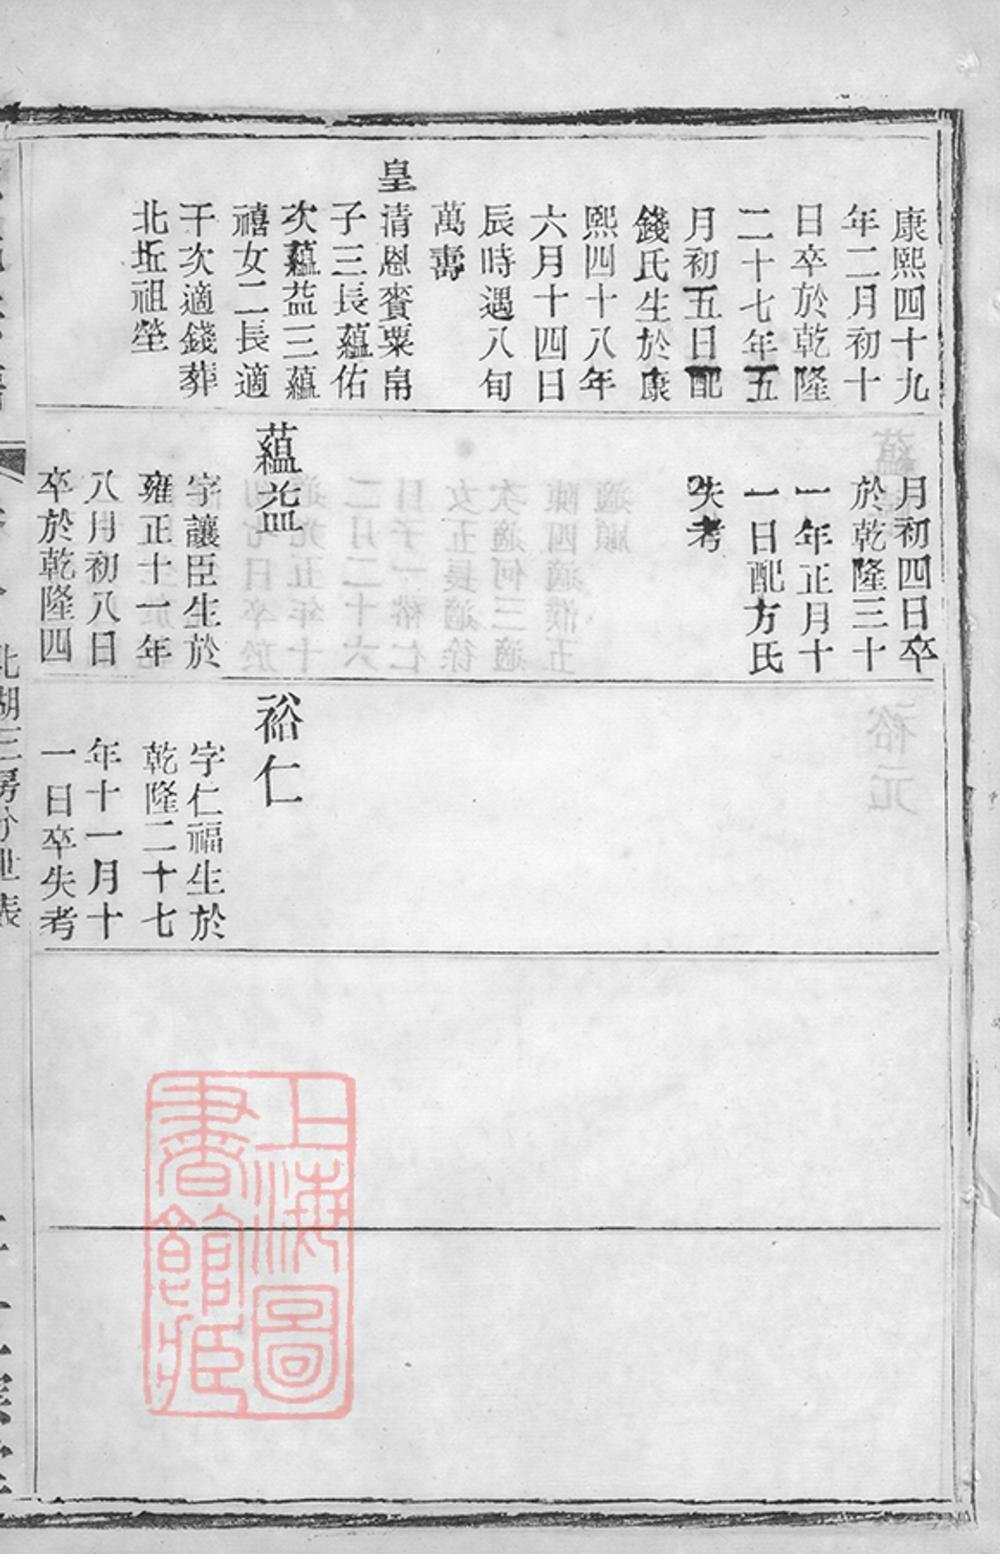 康熙四十九
年二月初十
日卒於乾隆
二十七年五
月初五日配
錢氏生於康
熙四十八年
六月十四日
辰時遇八旬
萬壽
皇清恩賚粟帛
子三長蘊佑
次蘊益三蘊
禧女二長適
干次適錢葬
北坵祖塋
月初四日卒
於乾隆三十
一年正月十
一日配方氏
失考
蘊益
字讓臣生於
雍正十一年
八月初八日
卒於乾隆四
裕仁
字仁福生於
乾隆二十七
年十一月十
一日卒失考
北湖三房分世表
上海圖
書館藏